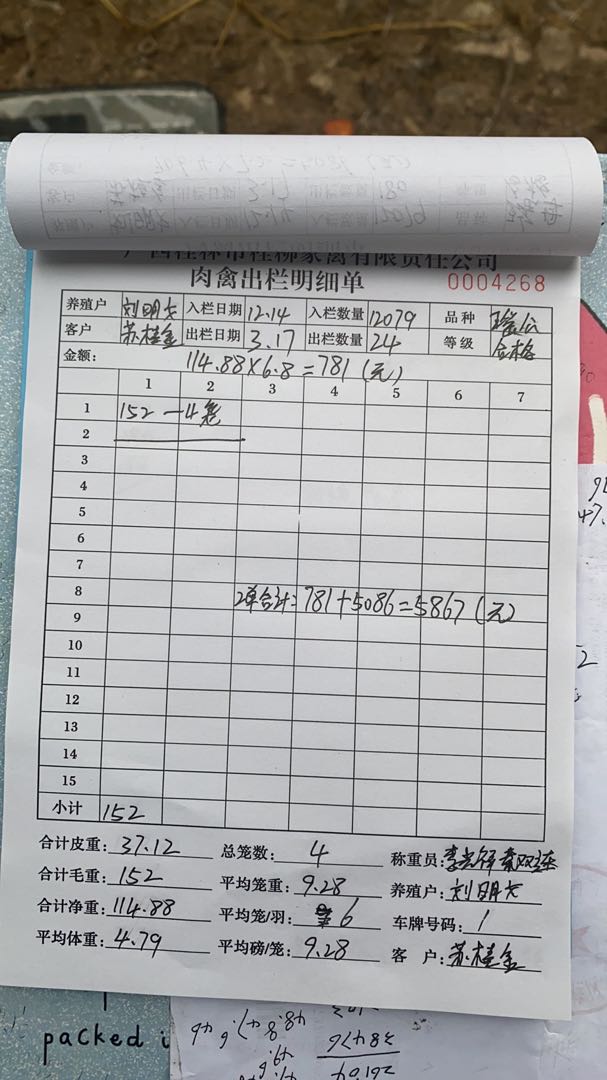 广西桂林市桂柳家禽有限责任公司
肉禽出栏明细单 0004268
养殖户 刘明 入栏日期 12.14 入栏数量 12079 品种 瑶公
客户 苏桂金 出栏日期 3.17 出栏数量 24 等级 合格
金额: 114.88×6.8=781(元)
1 2 3 4 5 6 7
1 152 —4笼
2
3
4
5
6
7
8 2单合计:781+5086=5867(元)
9
10
11
12
13
14
15
小计 152
合计皮重: 37.12 总笼数: 4 称重员:
合计毛重: 152 平均笼重: 9.28 养殖户: 刘明
合计净重: 114.88 平均笼/羽: 6 车牌号码: 1
平均体重: 4.79 平均磅/笼: 9.28 客户: 苏桂金
packed i